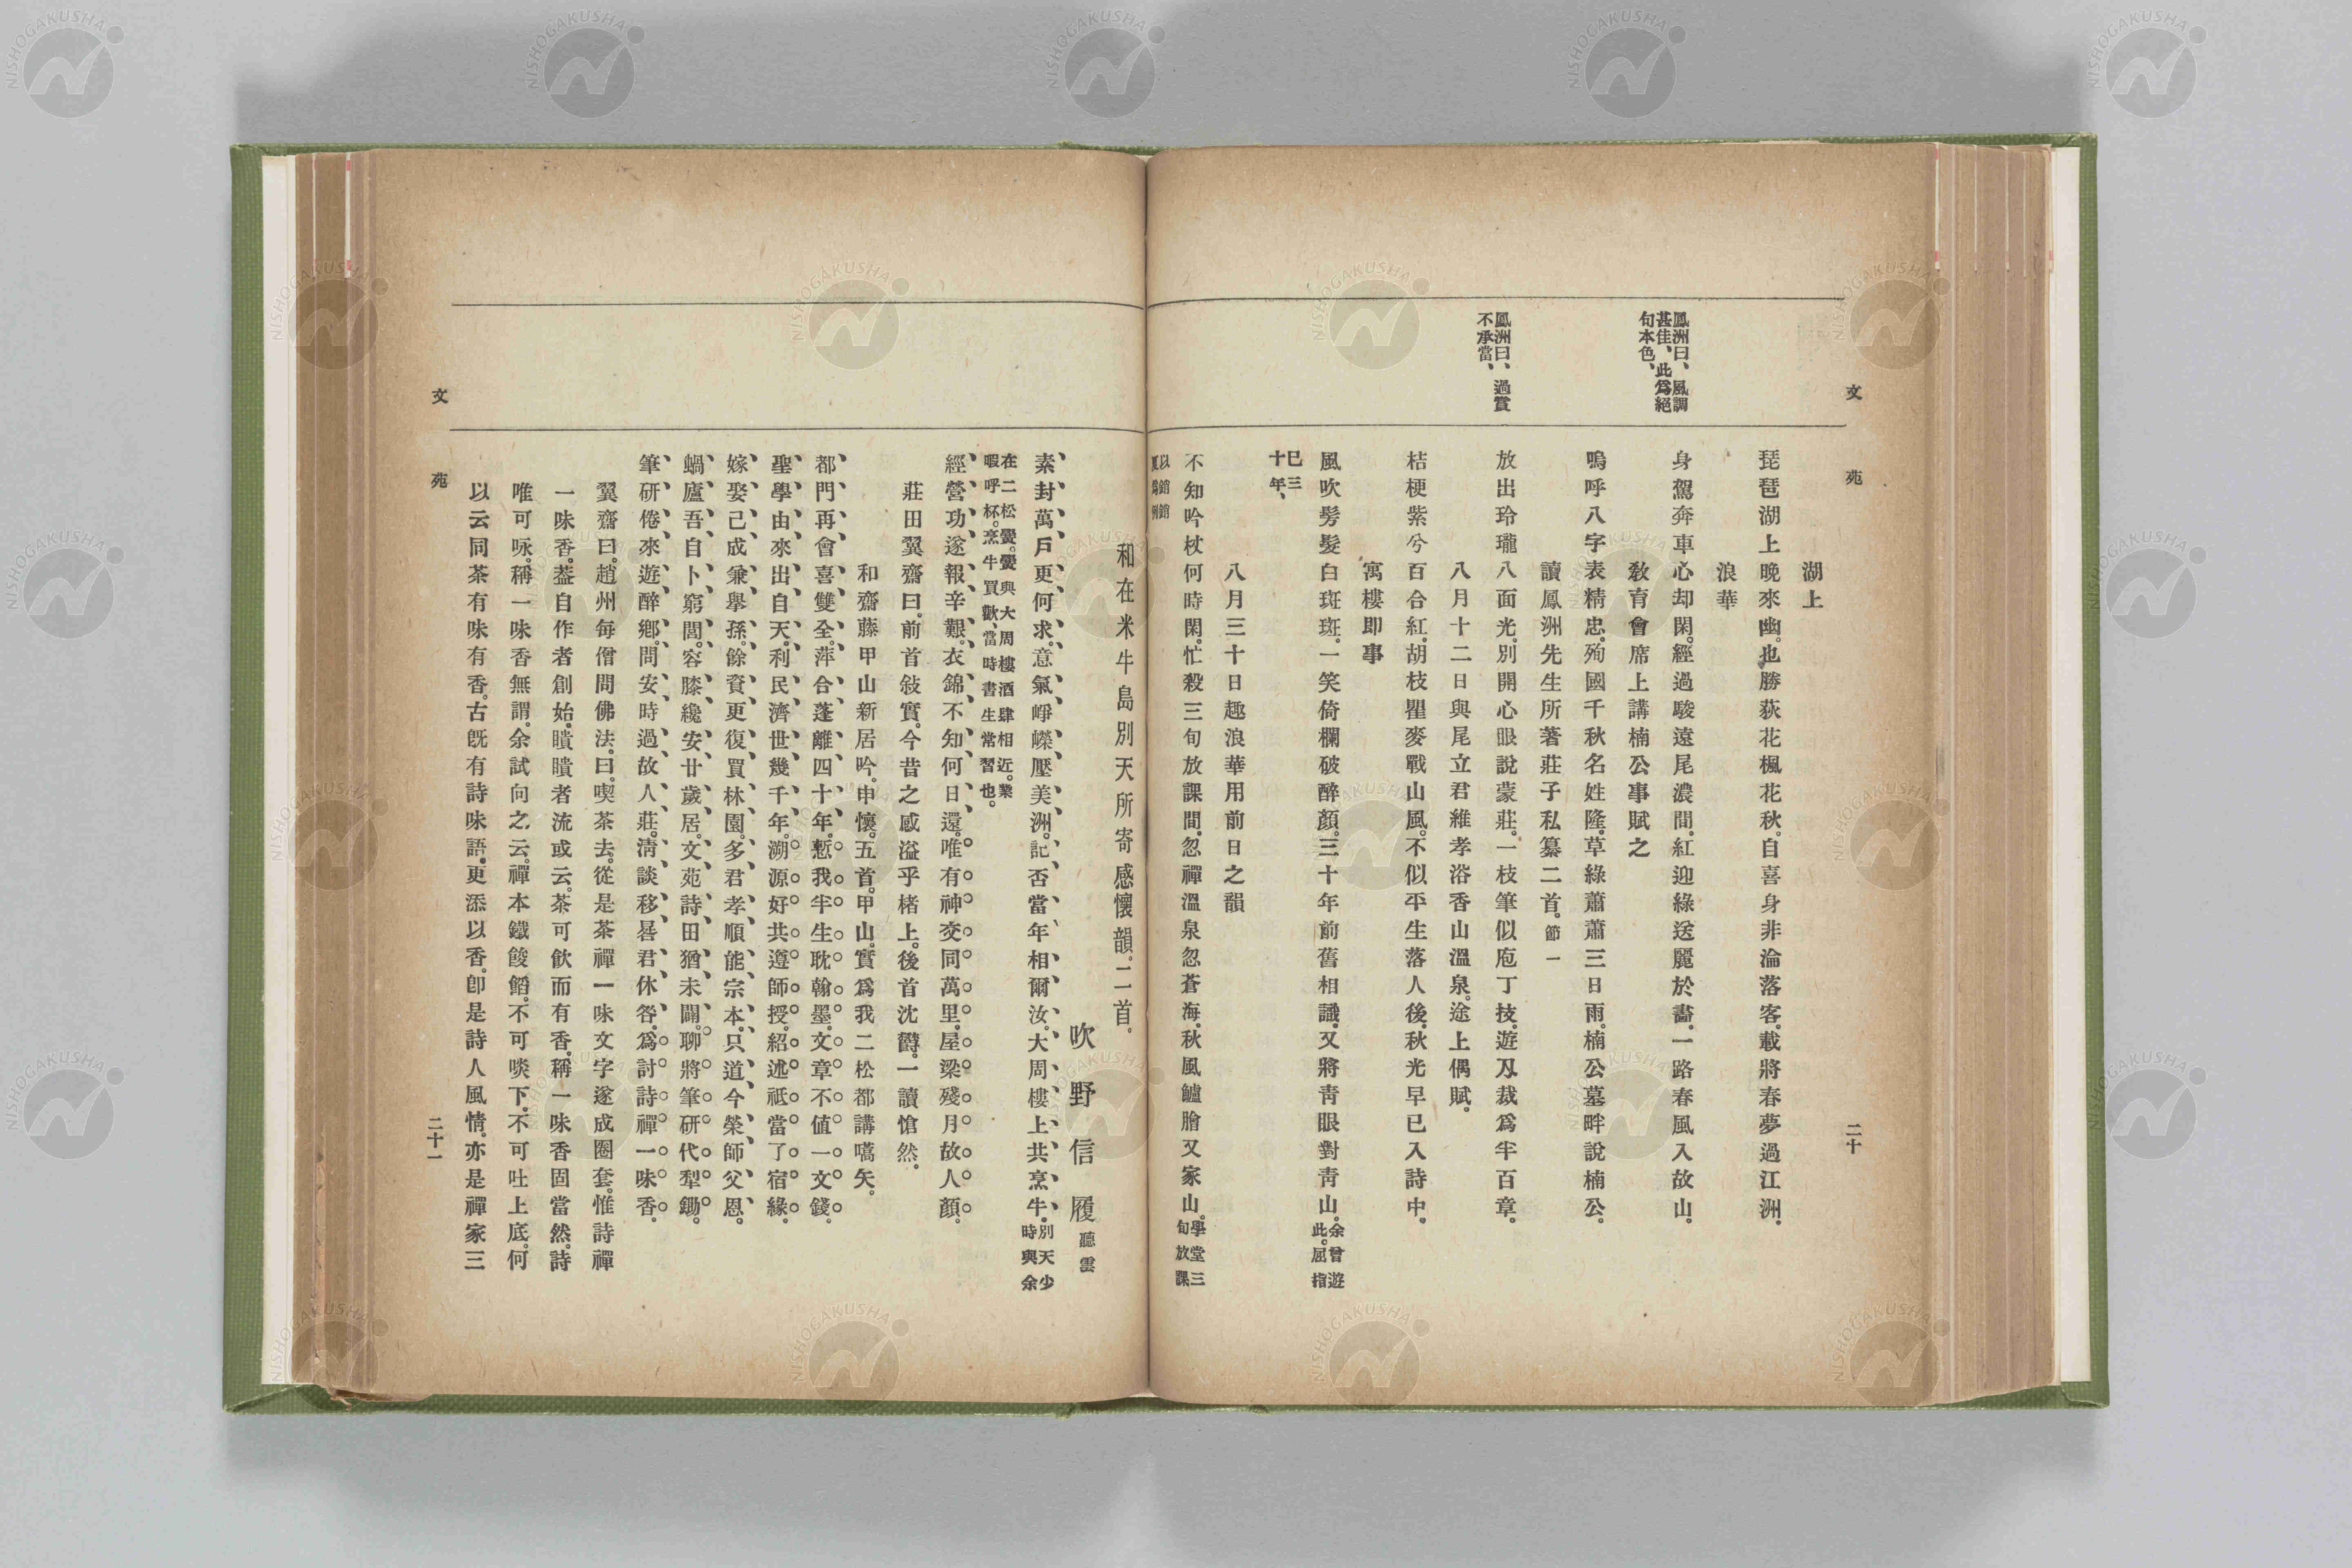 文苑
二十
鳳洲曰、風調
甚佳、此爲絕
句本色、
鳳洲曰、過賞
不承當、
湖上
琵琶湖上晚來幽。也勝荻花楓花秋。自喜身非淪落客。載將春夢過江洲。
浪華
身駕奔車心却閑。經過駿遠尾濃間。紅迎綠送麗於畵。一路春風入故山。
敎育會席上講楠公事賦之
嗚呼八字表精忠。殉國千秋名姓隆。草綠蕭蕭三日雨。楠公墓畔說楠公。
讀鳳洲先生所著莊子私纂二首。節一
放出玲瓏八面光。別開心眼說蒙莊。一枝筆似庖丁技。遊刄裁爲半百章。
八月十二日與尾立君維孝浴香山溫泉。途上偶賦。
桔梗紫兮百合紅。胡枝瞿麥戰山風。不似平生落人後。秋光早已入詩中。
寓樓即事
風吹髣髮白斑斑。一笑倚欄破醉顏。三十年前舊相識。又將靑眼對靑山。余曾遊
此。屈指
已三
十年、
八月三十日趣浪華用前日之韻
不知吟杖何時閑。忙殺三旬放課間。忽禪溫泉忽蒼海。秋風鱸膾又家山。學堂三
旬放課
以
和在米牛島別天所寄感懷韻。二首。
吹野信履聽雲
素封萬戶更何求。意氣崢嶸壓美洲。記否當年相爾汝。大周樓上共烹牛。別天少
時與余
在二松黌。黌與大周樓酒肆相近。業
暇呼杯。烹牛買歡、當時書生常習也。
經營功遂報辛艱。衣錦不知何日還。唯有神交同萬里。屋梁殘月故人顏。
莊田翼齋曰。前首敍實。今昔之感溢乎楮上。後首沈欝。一讀愴然。
和齋藤甲山新居吟。申懷。五首。甲山。實爲我二松都講嚆矢。
都門再會喜雙全。萍合蓬離四十年。慙我半生耽翰墨。文章不値一文錢。
聖學由來出自天。利民濟世幾千年。溯源好共遵師授。紹述祇當了宿緣。
嫁娶己成兼擧孫。餘資更復買林園。多君孝順能宗本。只道今榮師父恩。
蝸廬吾自卜窮閭。容膝纔安廿歲居。文苑詩田猶未闢。聊將筆研代犁鋤。
筆研倦來遊醉鄕。問安時過故人莊。淸談移晷君休咎。爲討詩禪一味香。
翼齋曰。趙州每僧問佛法。曰。喫茶去。從是茶禪一味文字遂成圈套。惟詩禪
一味香。葢自作者創始。瞶瞶者流或云。茶可飮而有香。稱一味香固當然。詩
唯可咏。稱一味香無謂。余試向之云。禪本鐵餕饀。不可啖下。不可吐上底。何
以云同茶有味有香。古旣有詩味語。更添以香。卽是詩人風情。亦是禪家三
文苑
二十一